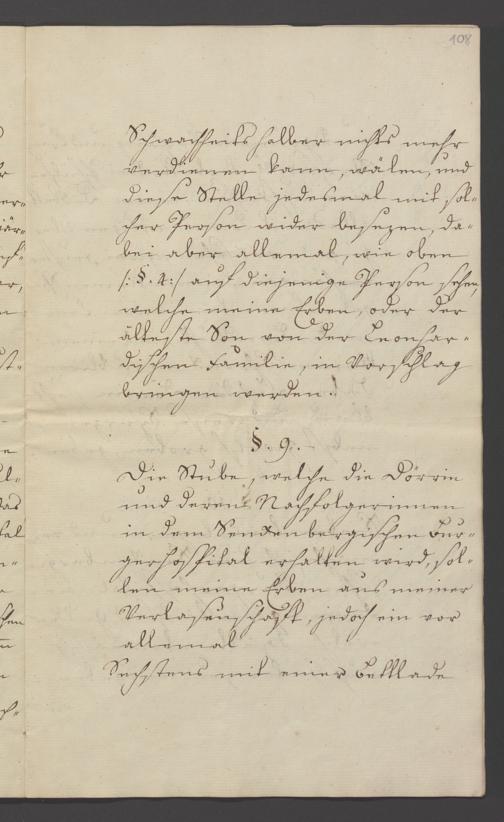 108
Schwachheits halber nichts mehr
verdienen kann, wälen, und
diese Stelle jedesmal mit sol-
cher Person wider besezen, da-
bei aber allemal, wie oben
/: §. 4:/ auf diejenige Person sehen,
welche meine Erben, oder der
älteste Son von der Leonhar-
dischen Familie, in Vorschlag
bringen werden.
§. 9.
Die Stube, welche die Dörrin
und deren Nachfolgerinnen
in dem Senckenbergischen Bur-
gerhospital erhalten wird, sol-
len meine Erben aus meiner
Verlasenschaft, jedoch ein vor
allemal
Sechstens mit einer Bettlade